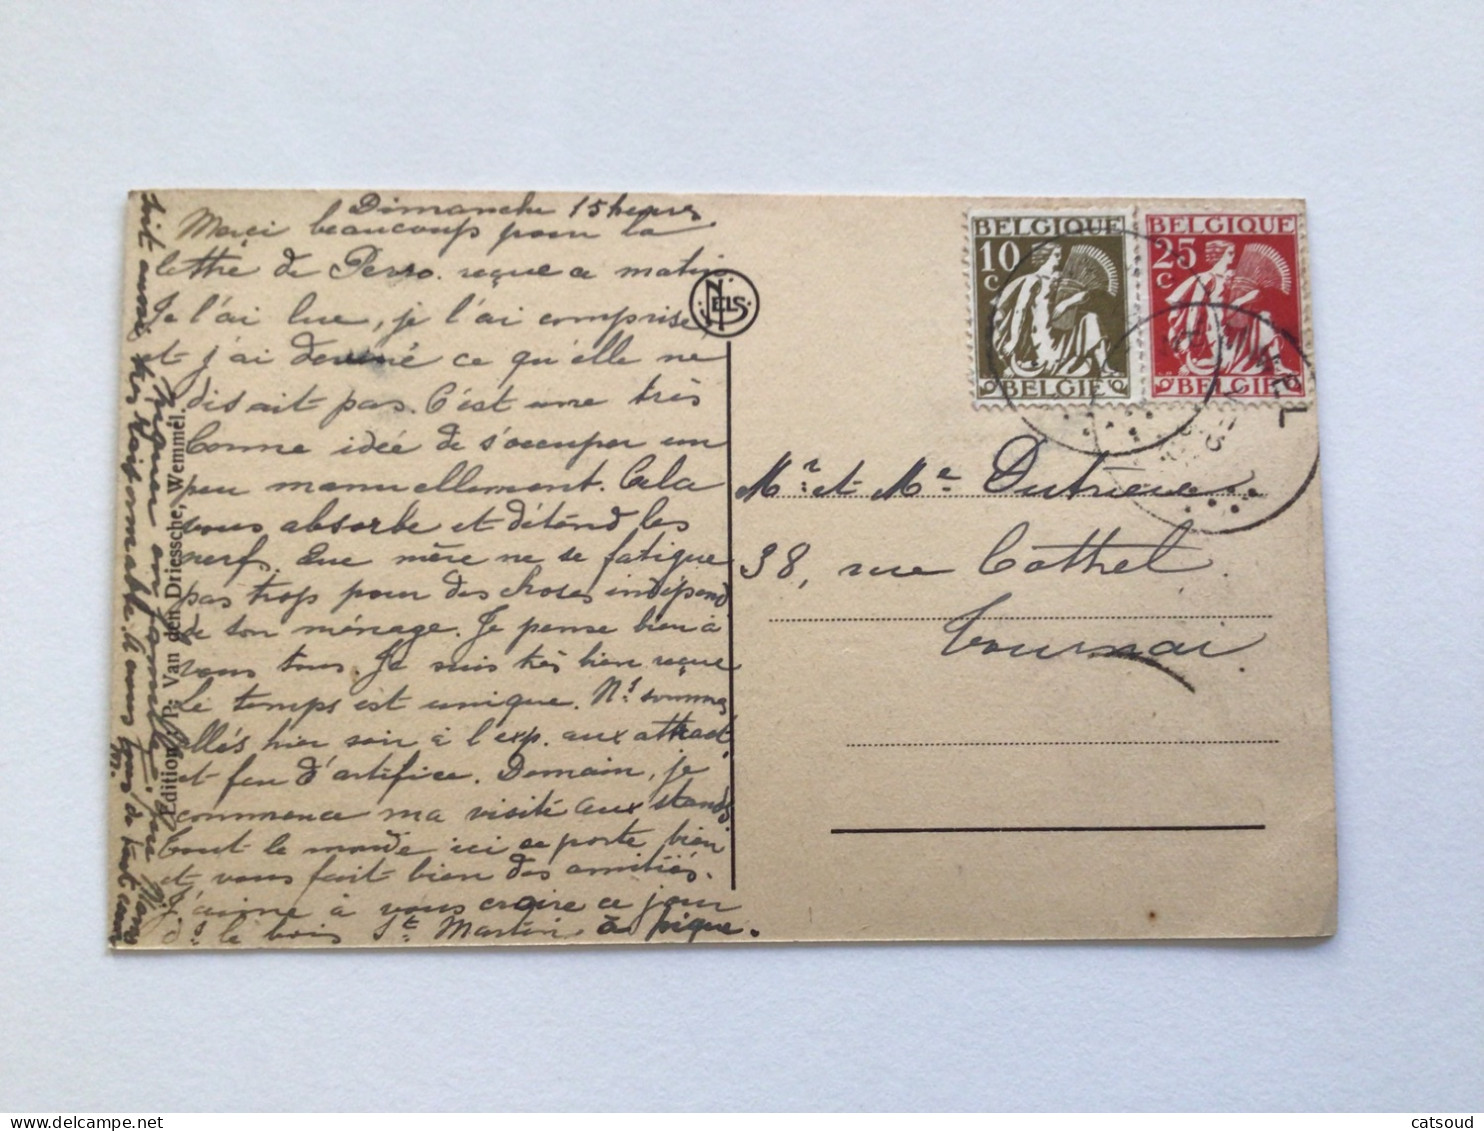 Dimanche 15 heures
Merci beaucoup pour la
lettre de Perso. reçue ce matin.
Je l'ai lue, je l'ai comprise
et j'ai deviné ce qu'elle ne
disait pas. C'est une très
bonne idée de s'occuper un
peu manuellement. Cela
vous absorbe et détend les
nerfs. Que mère ne se fatigue
pas trop pour des choses indépend
de son ménage. Je pense bien à
vous tous. Je suis très bien reçue
Le temps est unique. Ns sommes
allés hier soir à l'exp. aux attract.
et feu d'artifice. Demain, je
commence ma visite aux stands
Tout le monde ici se porte bien
et vous fait bien des amitiés.
J'aime à vous croire ce jour
ds le bois St Martin à pique.
niquer en famille. que Nono
soit aussi très raisonnable. à vous tous de tout cœur
Edition P. Van den Driessche, Wemmel.
NELS
BELGIQUE
10
c
BELGIE
BELGIQUE
25
c
BELGIE
Mr et Me Dutrieux
38, rue Cothel
Tournai
catsoud